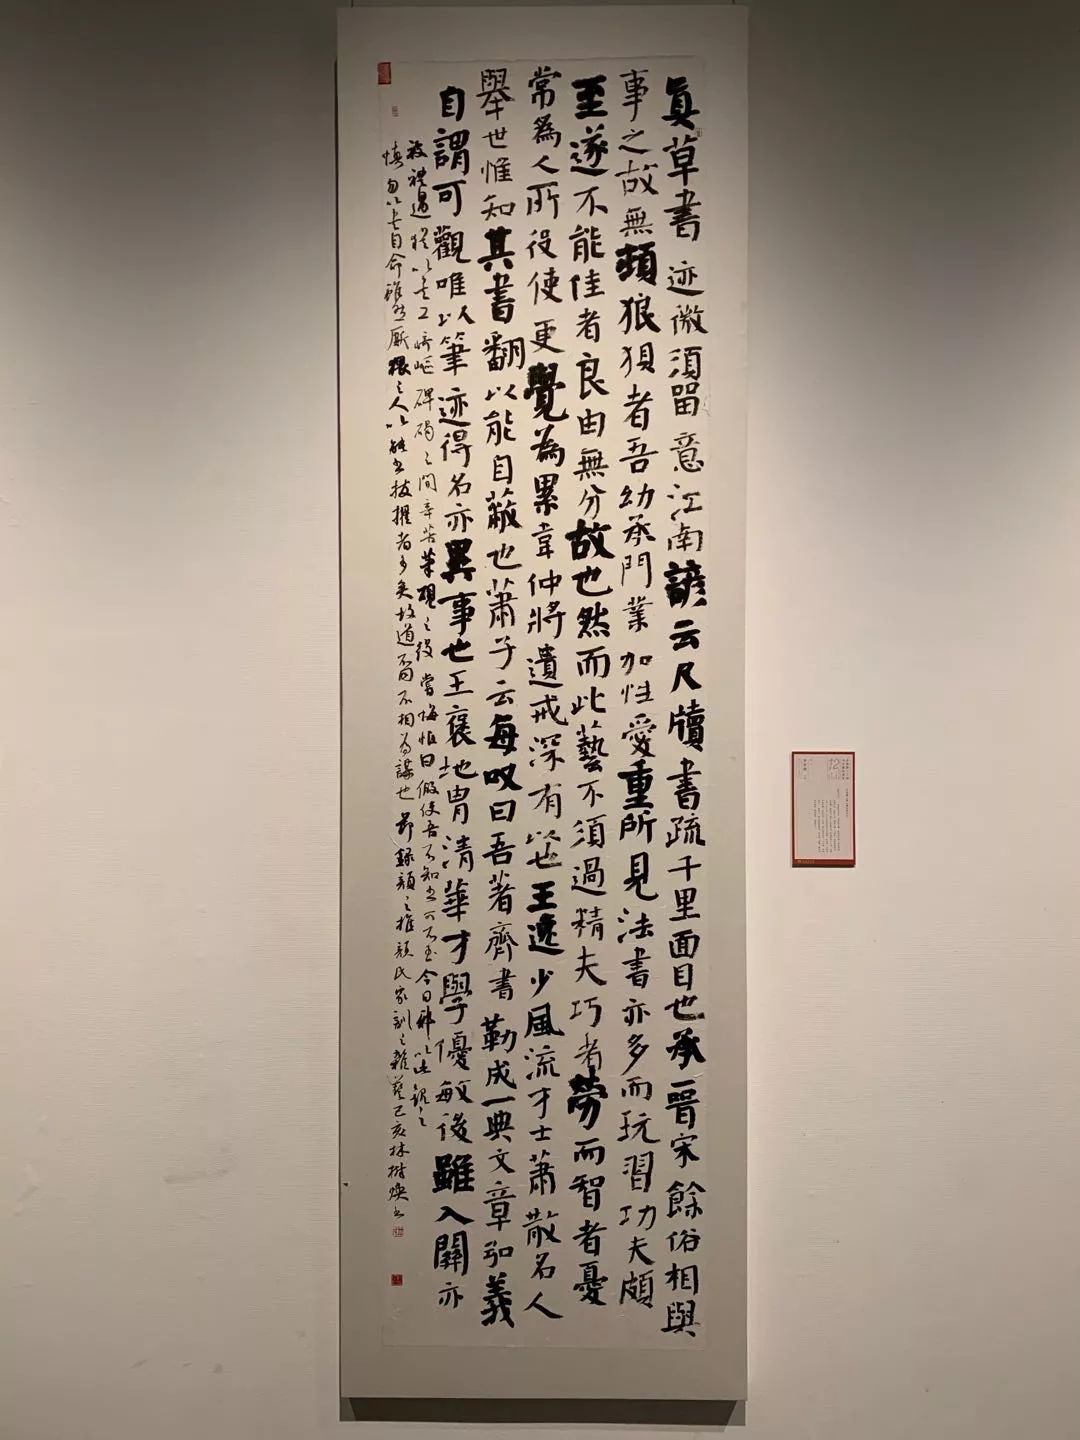 真草書迹微須留意江南諺云尺牘書疏千里面目也承晉宋餘俗相與
事之故無頓狼狽者吾幼承門業加性愛重所見法書亦多而玩習功夫頗
至遂不能佳者良由無分故也然而此藝不須過精夫巧者勞而智者憂
常為人所役使更覺為累韋仲將遺戒深有以也王逸少風流才士蕭散名人
舉世惟知其書翻以能自蔽也蕭子云每叹曰吾著齊書勒成一典文章弘義
自謂可觀唯以筆迹得名亦異事也王褒地胄清華才學優敏後雖入關亦
被禮遇猶以書工崎嶇碑碣之間辛苦筆硯之役嘗悔恨曰假使吾不知書可不至今日邪以此觀之
慎勿以書自命雖然厮猥之人以能書拔擢者多矣故道不同不相為謀也節錄顏之推顏氏家訓之雜藝己亥林樹煥書